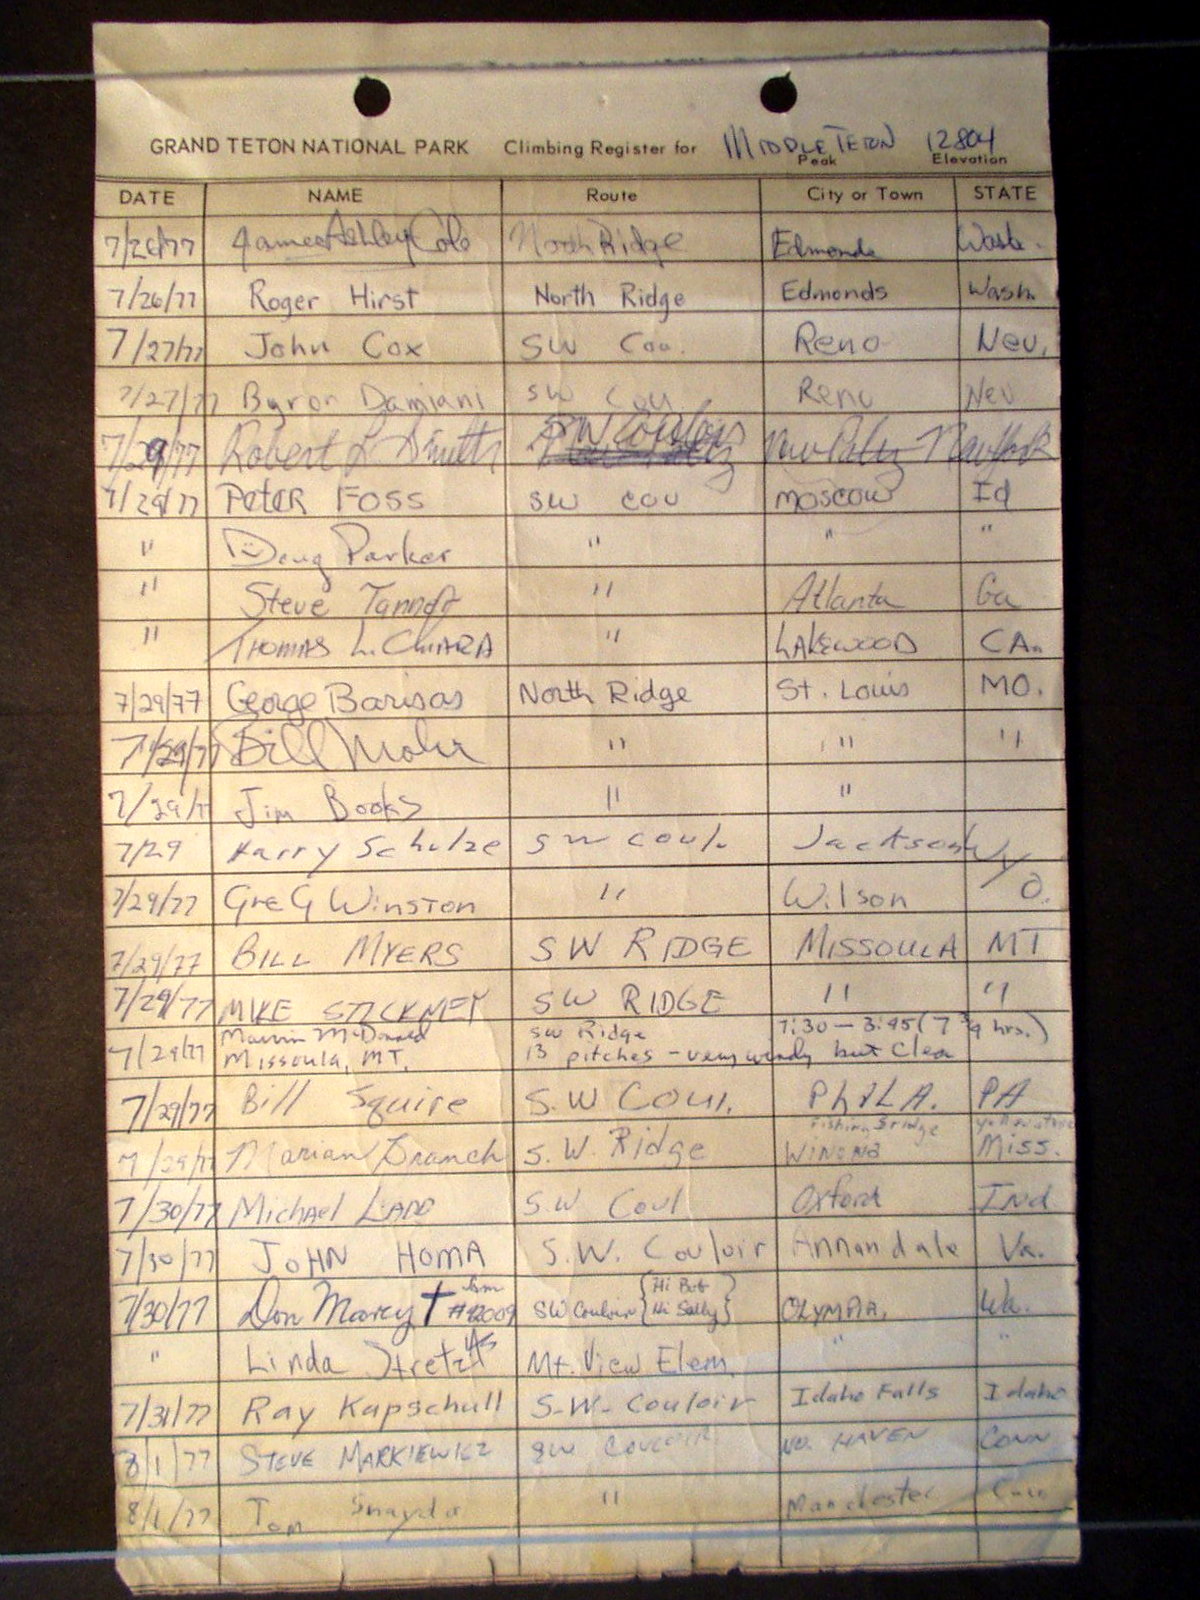 GRAND TETON NATIONAL PARK Climbing Register for MIDDLE TETON 12804
Peak Elevation
DATE NAME Route City or Town STATE
7/26/77 James Ashley Cole North Ridge Edmonds Wash.
7/26/77 Roger Hirst North Ridge Edmonds Wash.
7/27/77 John Cox SW Cou. Reno Nev.
7/27/77 Byron Damiani SW Cou Reno Nev
7/29/77 Robert L Smith SW Couloir New Paltz New York
7/29/77 PETER FOSS SW COU MOSCOW Id
" Doug Parker " " "
" Steve " Atlanta Ga
" THOMAS L. CHIARA " LAKEWOOD CA.
7/29/77 George Barisas North Ridge St. Louis MO.
7/29/77 Bill Mohr " " "
7/29/77 Jim Books " "
7/29 Harry Schulze SW Coul. Jackson Wyo.
7/29/77 GreG Winston " Wilson
7/29/77 BILL MYERS SW RIDGE MISSOULA MT
7/29/77 MIKE STICKNEY SW RIDGE " "
Marvin McDonald SW Ridge 7:30 - 3:45 (7 3/4 hrs.)
7/29/77 Missoula, MT. 13 pitches - very windy but clear
7/29/77 Bill Squire S.W COUl. PhILA. PA
Fishing Bridge Yellowstone
7/29/77 Marian Branch S.W. Ridge WINONA Miss.
7/30/77 Michael LADD S.W Coul Oxford Ind
7/30/77 JOHN HOMA S.W. Couloir Annandale Va.
7/30/77 Don Marcy SW Couloir {Hi Bob Hi Sally} OLYMPIA, Wa.
" Linda Mt. View Elem. " "
7/31/77 Ray Kapschull S.W. Couloir Idaho Falls Idaho
8/1/77 STEVE MARKIEWICZ SW COULOIR NO. HAVEN CONN
8/1/77 Tom " Manchester Conn